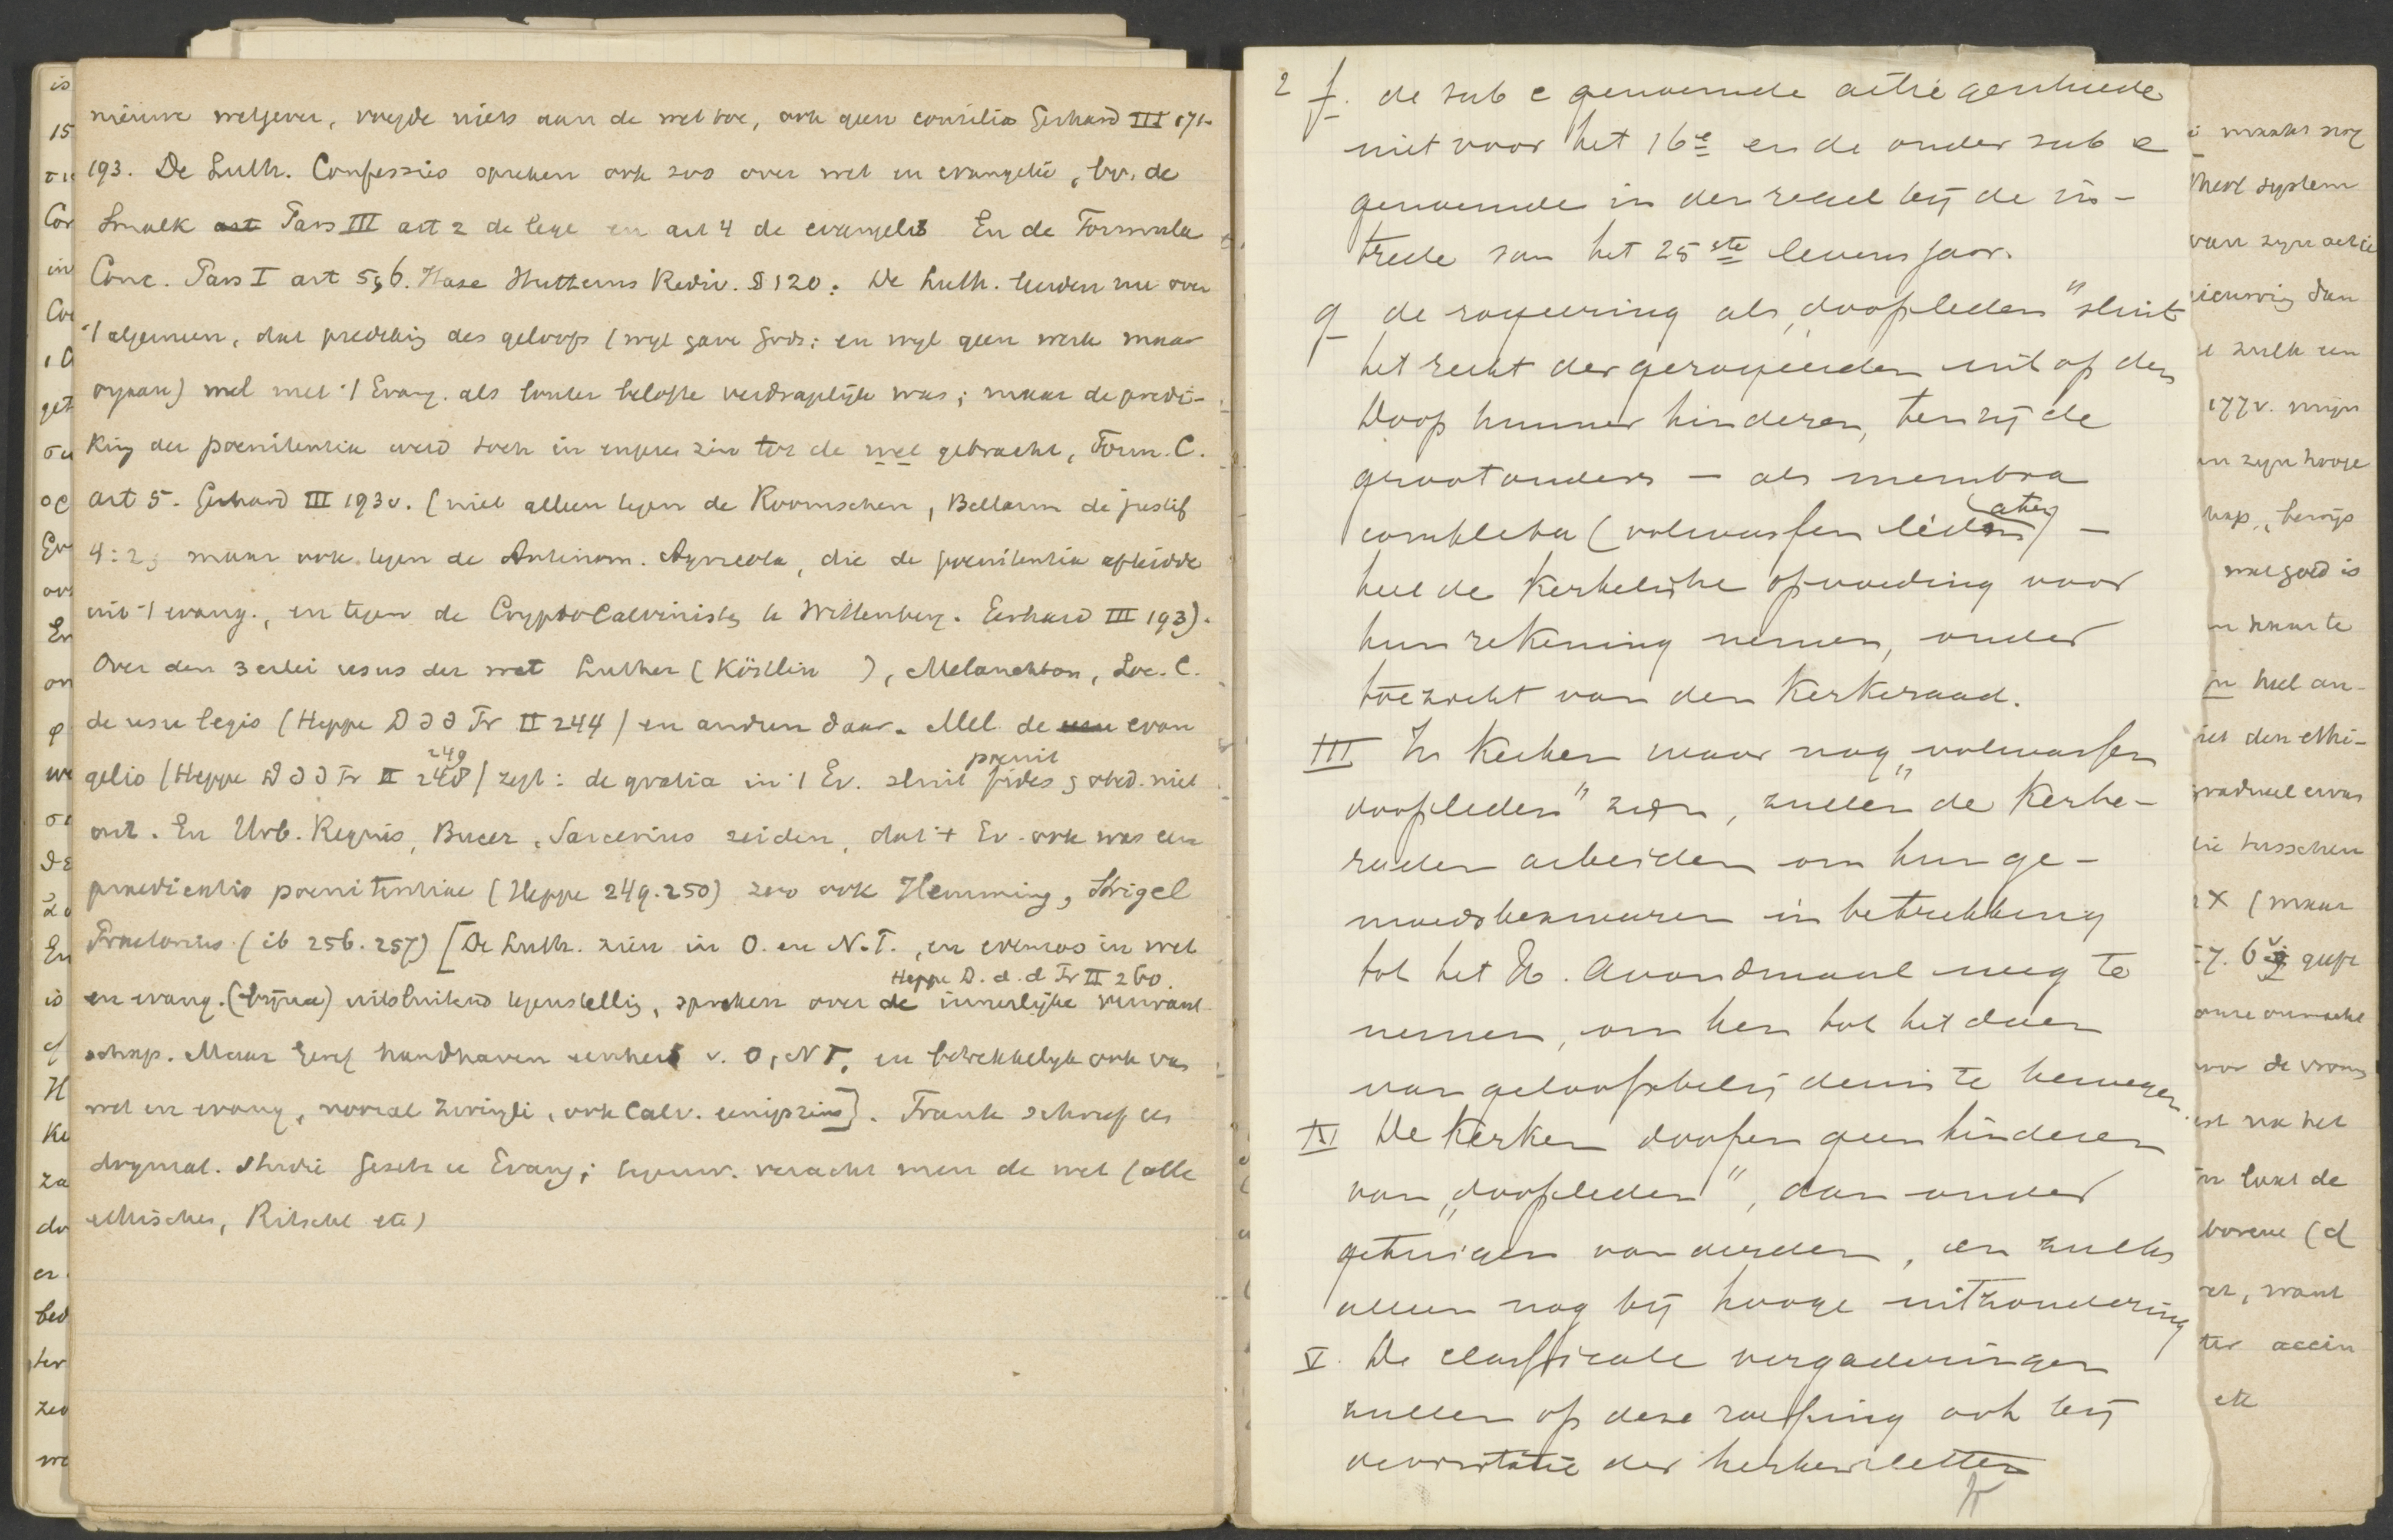 nieuwe wetgever, voegde niets aan de wet toe, ook geen consilia Gerhard III 171-
193. De Luth. Confessies spreken ook zoo over wet en evangelie, bv. de
Smalk art Pars III art 2 de lege en art 4 de evangelio En de Formula
Conc. Pars I art 5, 6. Hase Hutterus Rediv. § 120. De Luth. leerden nu over
't algemeen, dat prediking des geloofs (wijl gave Gods; en wijl geen werk maar
orgaan) wel met 't Evang. als louter belofte verdraaglijk was; maar de predi-
king der poenitentia werd toch in engeren zin tot de wet gebracht, Form. C.
art 5. Gerhard III 193v. (niet alleen tegen de Roomschen, Bellarm de justif
4:2; maar ook tegen de Antinom. Agricola, die de poenitentia afleidde
uit 't evang., en tegen de CryptoCalvinisten te Wittenberg. Gerhard III 193).
Over den 3 erlei usus der wet Luther (Köstlin ), Melanchton, Loc. C.
de usu legis (Heppe D d d Pr II 244) en andren daar. Mel. de usu evan
249 poenit
gelio (Heppe D d d Pr II 248) zegt: de gratia in 't Ev. sluit fides, obed. niet
uit. En Urb. Regius, Bucer, Sarcerius zeiden, dat 't Ev. ook was een
praedicatio poenitentiae (Heppe 249. 250) zoo ook Hemming, Strigel
Praetorius (ib 256. 257) [De Luth. zien in O. en N. T., en evenzoo in wet
Heppe D. d. d Pr II 260.
en evang. uitsluitend tegenstelling, spreken over de innerlijke verwant
schap. Maar Geref handhaven eenheid v. O, N T, en betrekkelijk ook van
wet en evang, vooral Zwingli, ook Calv. eenigszins]. Frank schreef een
dogmat. studie Gesetz u Evang; tegenw. veracht men de wet (alle
ethischen, Ritschl etc)
2 f. de sub e genoemde actie geschiede
niet voor het 16e en de onder sub e
genoemde in den regel bij de in-
trede van het 25ste levensjaar.
g de royeering als „doopleden" sluit
het recht der geroyeerden uit op den
Doop hunner kinderen, tenzij de
grootouders — als membra
completa (volwassen leden) —
heel de Kerkelijke opvoeding voor
hun rekening nemen, onder
toezicht van den Kerkeraad.
III In Kerken waar nog „volwassen
doopleden" zijn, zullen de Kerke-
raden arbeiden om hun ge-
moedsbezwaren in betrekking
tot het H. Avondmaal weg te
nemen, om hen tot het doen
van geloofsbelijdenis te bewegen.
IV De Kerken doopen geen kinderen
van „doopleden", dan onder
getuigen van derden, en zulks
alleen nog bij hooge uitzondering
V. De classicale vergaderingen
zullen op deze roeping ook bij
de visitatie der kerken letten
i maakt nog
heel system
van zijn actie
zulk een
177v. mijn
en zijn hooge
hap, bewijs
wat goed is
in heel an-
iet den ethi-
gradueel ervan
tusschen
x (maar
voor de vroom
in laat de
borene (d
er, want
ter accin
etc
is
15
Cor
in
get
Ev
En
on
we
De
En
is
of
H
Ke
za
do
er
bed
ter
zoo
we